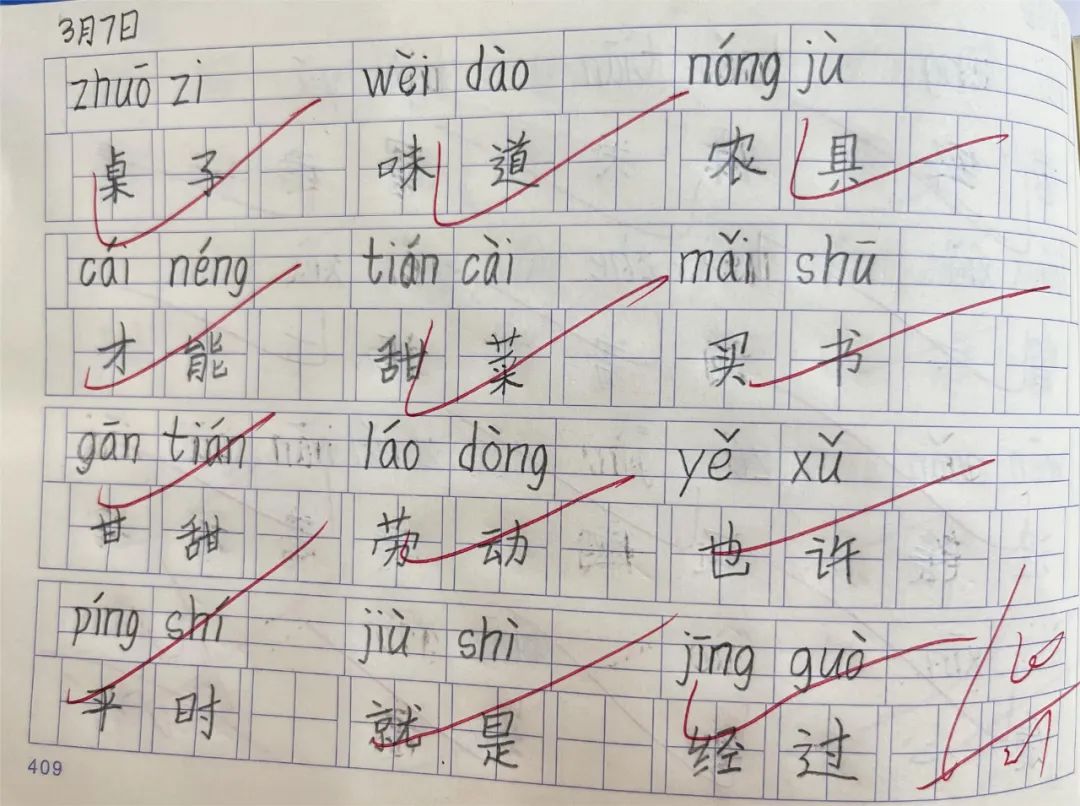 3月7日
zhuō zi wèi dào nóng jù
桌子 味道 农具
cái néng tián cài mǎi shū
才能 甜菜 买书
gān tián láo dòng yě xǔ
甘甜 劳动 也许
píng shí jiù shì jīng guò
平时 就是 经过
409